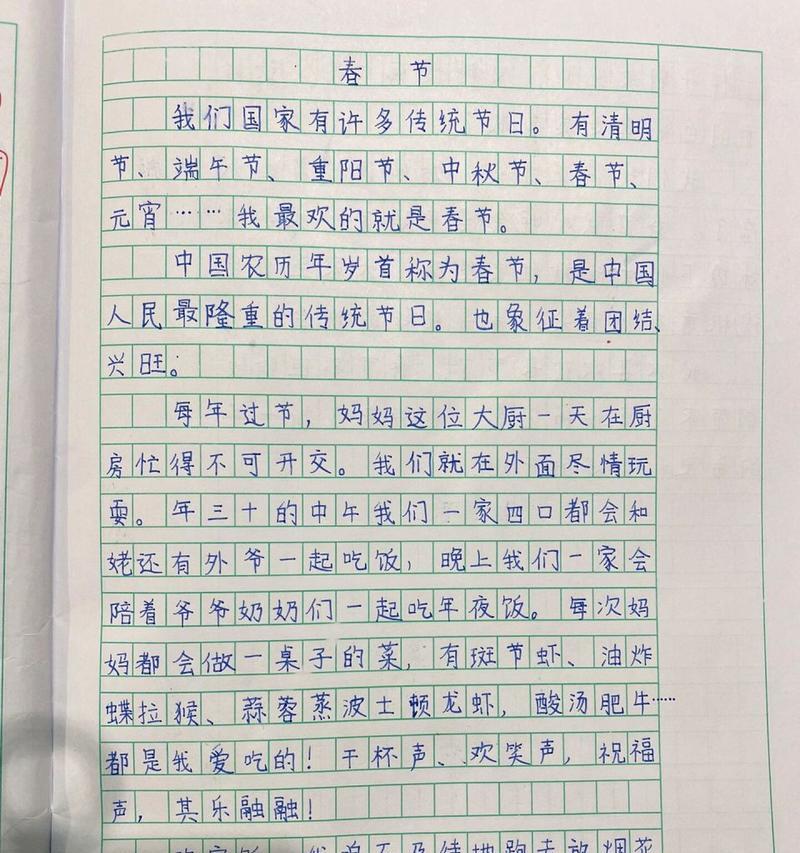 春节
我们国家有许多传统节日。有清明
节、端午节、重阳节、中秋节、春节、
元宵……我最欢的就是春节。
中国农历年岁首称为春节，是中国
人民最隆重的传统节日。也象征着团结、
兴旺。
每年过节，妈妈这位大厨一天在厨
房忙得不可开交。我们就在外面尽情玩
耍。年三十的中午我们一家四口都会和
姥还有外爷一起吃饭，晚上我们一家会
陪着爷爷奶奶们一起吃年夜饭。每次妈
妈都会做一桌子的菜，有斑节虾、油炸
蝶拉猴、蒜蓉蒸波士顿龙虾，酸汤肥牛……
都是我爱吃的！干杯声、欢笑声，祝福
声，其乐融融！